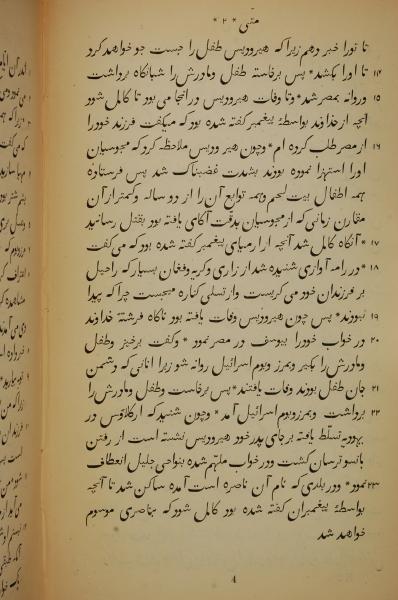 متی * ۲ *
تا تورا خبر دهم زیرا که هیرودیس طفل را جست جو خواهد کرد
۱۴ تا اورا بکشد * پس برخاسته طفل ومادرش را شبانگاه برداشت
۱۵ وروانه بمصر شد * وتا وفات هیرودیس درانجا می بود تا کامل شود
آنچه از خداوند بواسطهٔ پیغمبر گفته شده بود که میگفت فرزند خودرا
۱۶ از مصر طلب کرده ام * وچون هیرودیس ملاحظه کرد که مجوسیان
اورا استهزا نموده بودند بشدت غضبناک شد پس فرستاده
همه اطفال بیت لحم وهمه توابع آن را از دو ساله وکمتر از آن
مقارن زمانی که از مجوسیان بدقت آگاهی یافته بود بقتل رسانید
۱۷ * آنگاه کامل شد آنچه از ارمیای پیغمبر گفته شده بود که می گفت
۱۸ * در رامه آوازی شنیده شد از زاری وگریه وفغان بسیار که راحیل
بر فرزندان خود می گریست واز تسلی کناره میجست چرا که پیدا
۱۹ نبودند * پس چون هیرودیس وفات یافته بود ناگاه فرشتهٔ خداوند
۲۰ در خواب خودرا بیوسف در مصر نمود * وگفت برخیز وطفل
ومادرش را بگیر وبمرز وبوم اسرائیل روانه شو زیرا آنانی که دشمن
۲۱ جان طفل بودند وفات یافتند * پس برخاست وطفل ومادرش را
۲۲ برداشت وبمرز وبوم اسرائیل آمد * وچون شنید که ارکلاوس در
یهودیه تسلط یافته بر جای پدر خود هیرودیس نشسته است از رفتن
بانسو ترسان گشت ودر خواب ملهم شده بنواحی جلیل انعطاف
۲۳ نمود * ودر بلدی که نام آن ناصره است آمده ساکن شد تا آنچه
بواسطهٔ پیغمبران گفته شده بود کامل شود که بناصری موسوم
خواهد شد
4